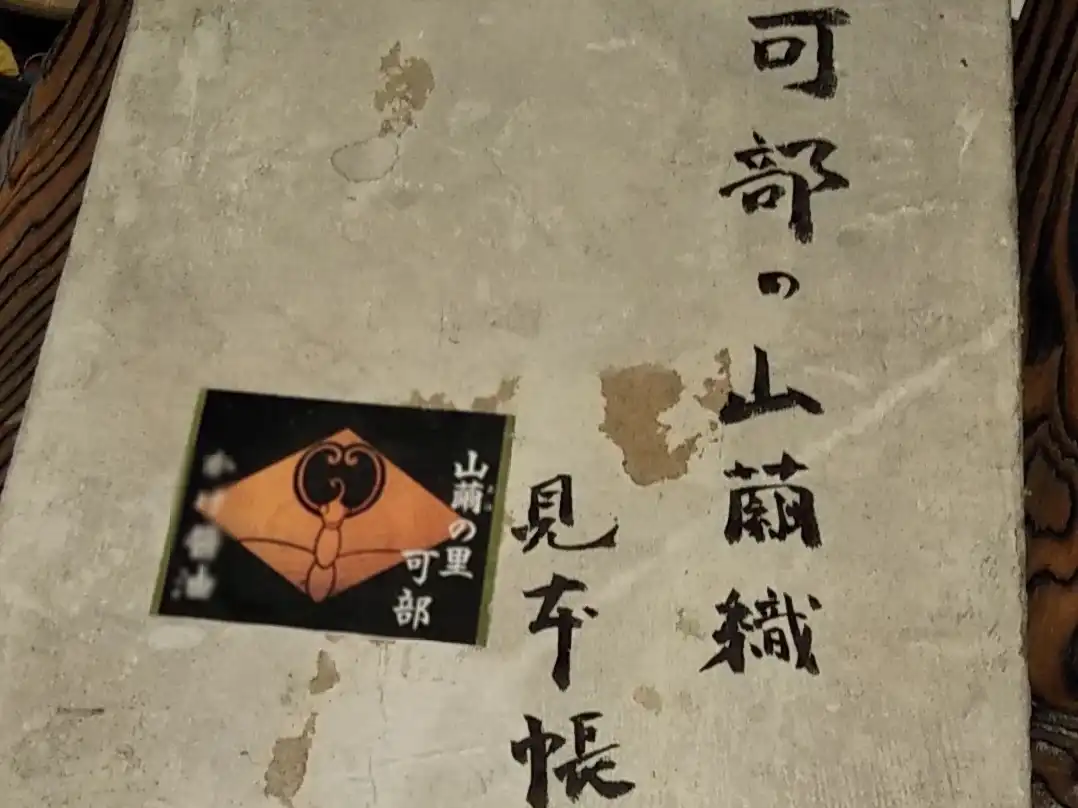 可部の山繭織
見本帳
山繭の里
可部